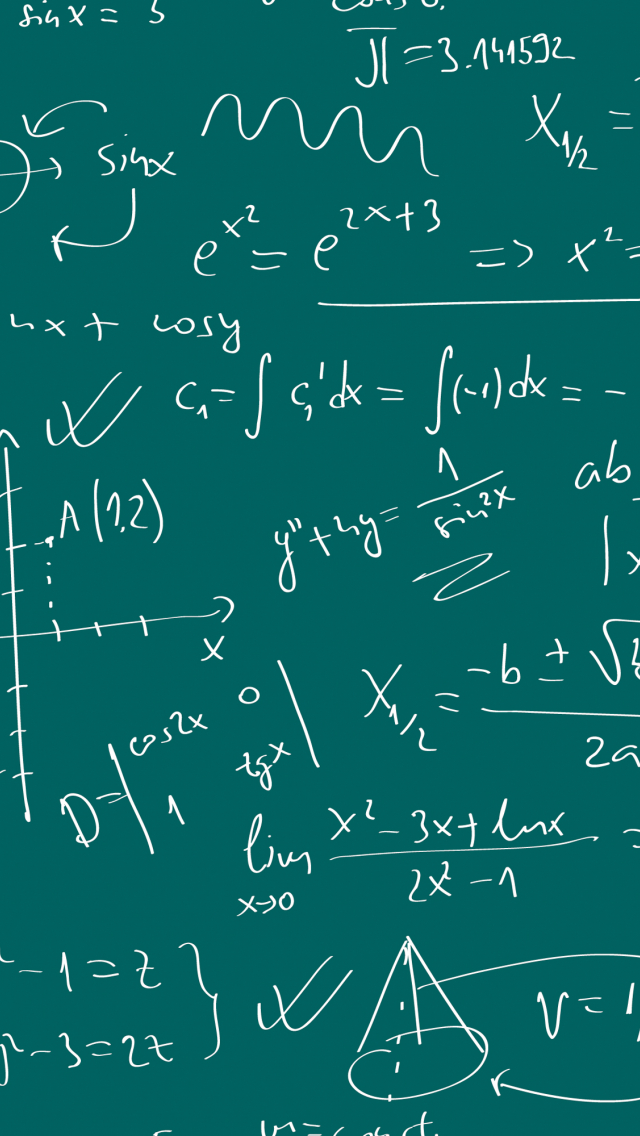 sin x = 3
π = 3.141592
sinx
X₁/₂ =
e^x² = e^2x+3 => x² =
nx + cosy
C₁ = ∫ C₁' dx = ∫(-1) dx = -
ab
A(1,2)
y'' + 4y = 1/sin²x
x
X₁/₂ = -b ± √ / 2a
D = | cos2x 0
1 tgx |
lim x→0 x² - 3x + lnx / 2x² - 1 =
- 1 = z
² - 3 = 2z }
V = 1
= const.